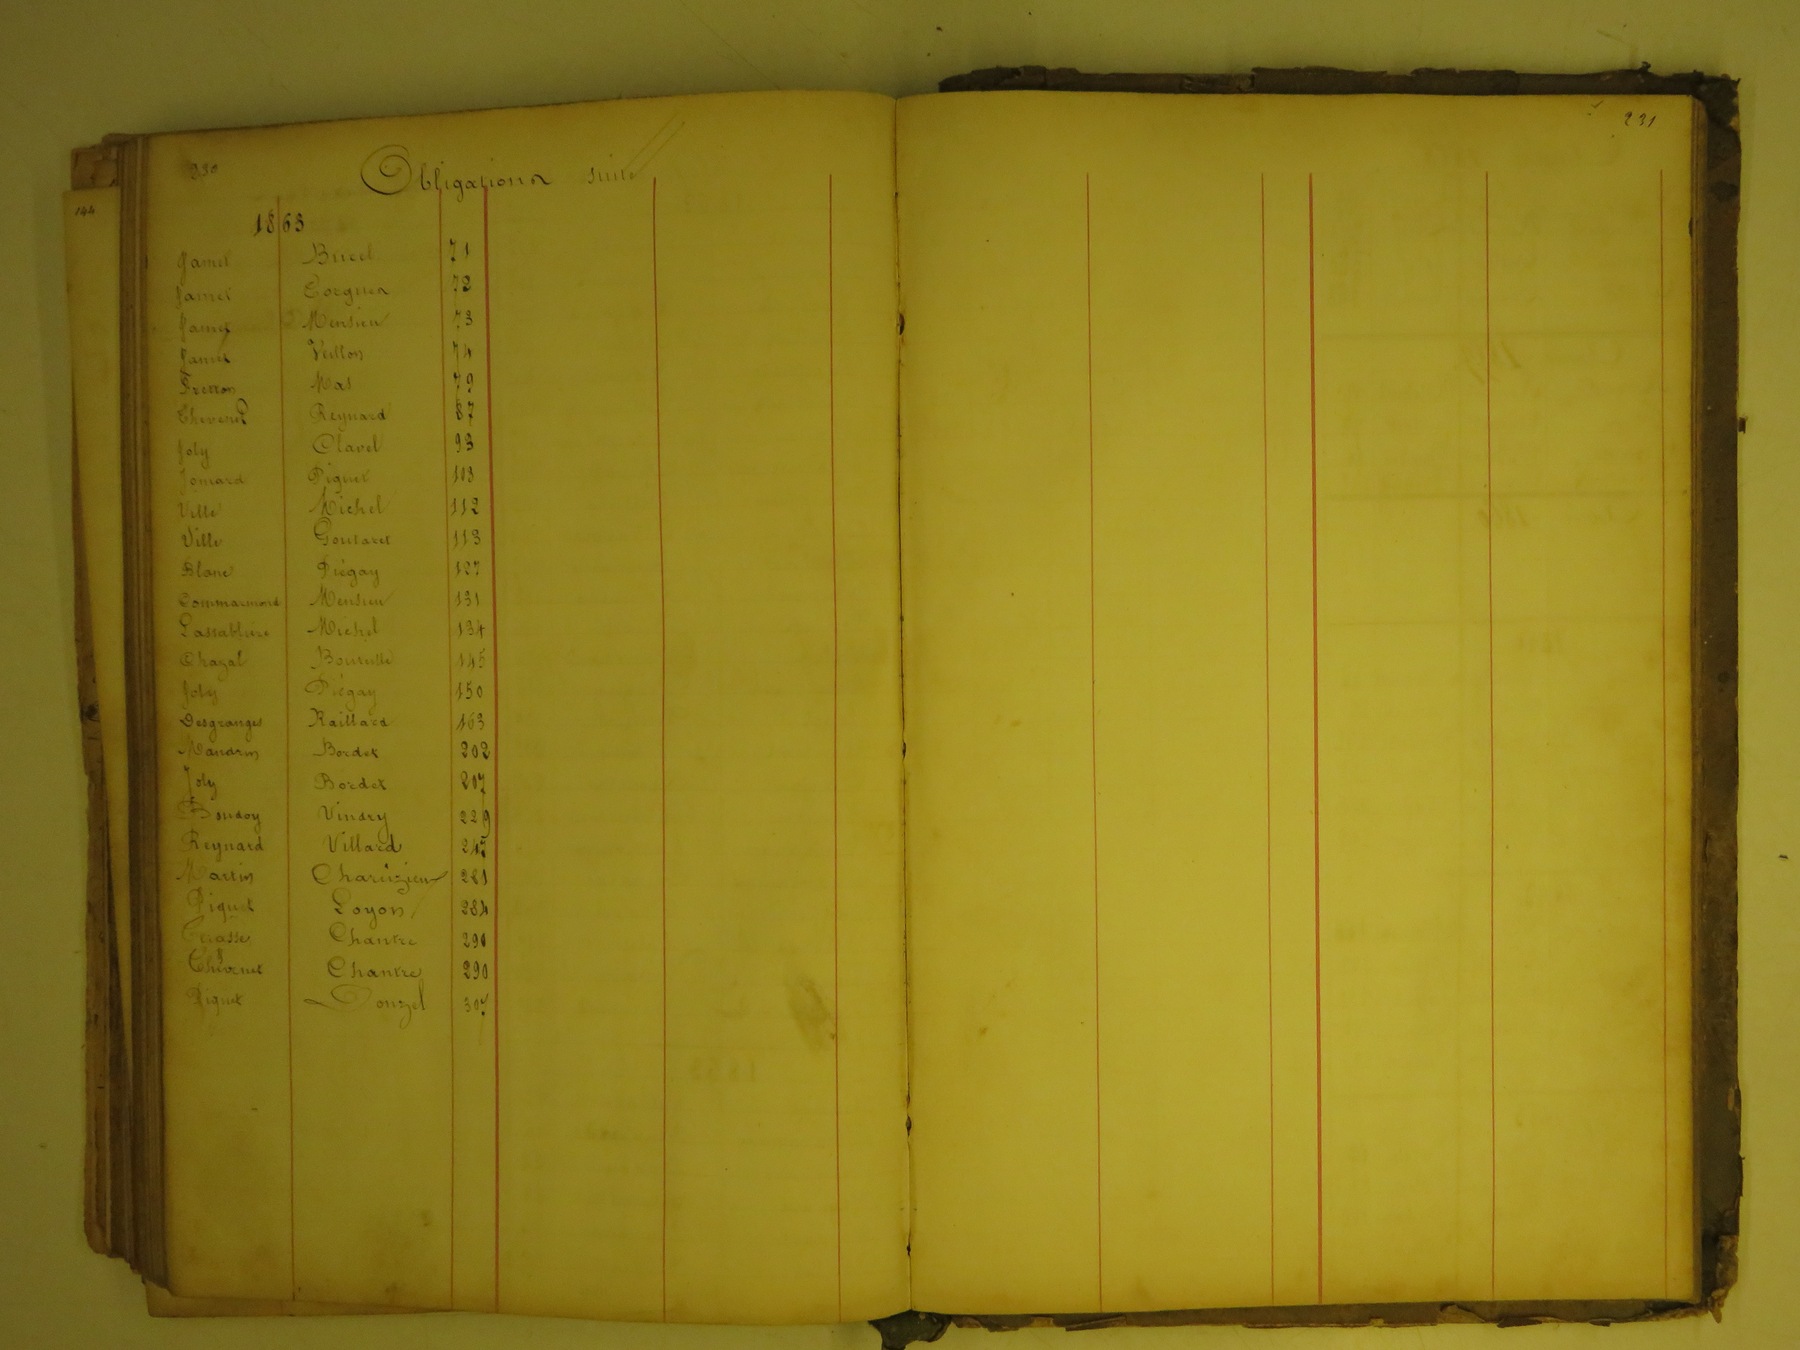 144
230
Obligations suite
1863
Jamet Bricel 71
Jamet Corgner 72
Jamet Mensieu 73
Jamet Veillon 74
Fretton Mas 79
Thevenet Reynard 87
Joly Clavel 93
Jomard Piquet 103
Ville Michel 112
Ville Goutaret 113
Blanc Piégay 127
Commarmond Mensieu 131
Lassablière Michel 134
Chazal Bouteille 145
Joly Piégay 150
Desgranges Raillard 163
Mandrin Bordet 202
Joly Bordet 207
Boudoy Vindry 229
Reynard Villard 245
Martin Charézieux 281
Piquet Loyon 284
Terasse Chantre 290
Thevenet Chantre 290
Piquet Donzel 307
231